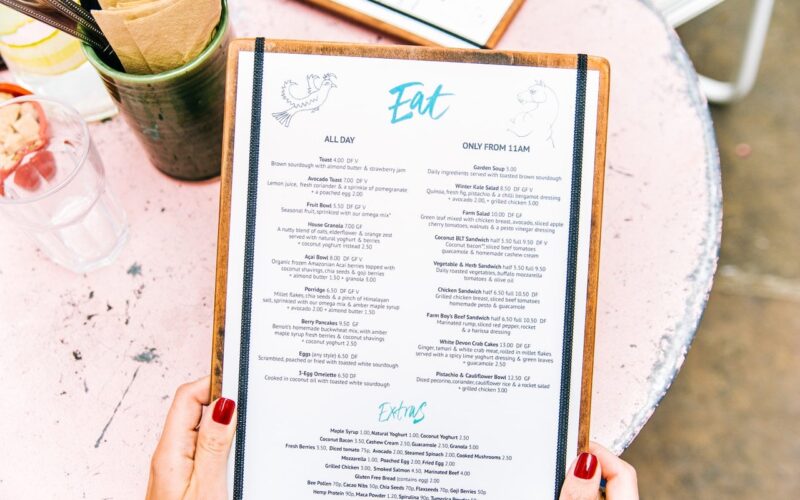 Eat
ALL DAY
Toast 4.00 DF V
Brown sourdough with almond butter & strawberry jam
Avocado Toast 7.00 DF V
Lemon juice, fresh coriander & a sprinkle of pomegranate
+ a poached egg 2.00
Fruit Bowl 5.50 DF GF V
Seasonal fruit, sprinkled with our omega mix*
House Granola 7.00 GF
A nutty blend of oats, elderflower & orange zest
served with natural yoghurt & berries
+ coconut yoghurt instead 2.50
Açai Bowl
Organic frozen Amazonian Açai berries topped with
coconut shavings, chia seeds & goji berries
+ almond butter 1.50 + granola 3.00
Porridge 6.50 DF GF V
Millet flakes, chia seeds & a pinch of Himalayan
salt, sprinkled with our omega mix & amber maple syrup
+ avocado 2.00 + almonds 1.00
Berry Pancakes 9.50 GF
Benoit's homemade buckwheat mix, with amber
maple syrup fresh berries & coconut shavings
+ coconut yoghurt 2.50
Eggs (any style) 6.50 DF
Scrambled, poached or fried with toasted white sourdough
3-Egg Omelette 6.50 DF
Cooked in coconut oil with toasted white sourdough
ONLY FROM 11AM
Garden Soup 5.00
Daily ingredients served with toasted brown sourdough
Winter Kale Salad 8.50 DF GF V
Quinoa, fresh fig, pistachio & a chilli bergamot dressing
+ avocado 2.00, + grilled chicken 3.00
Farm Salad 10.00 DF GF
Green leaf mixed with chicken breast, avocado, sliced apple
cherry tomatoes, walnuts & a pesto vinegar dressing
Coconut BLT Sandwich half 5.50 full 9.50 DF V
Coconut bacon™, sliced beef tomatoes
guacamole & homemade cashew cream
Vegetable & Herb Sandwich half 5.50 full 9.50
Daily roasted vegetables, buffalo mozzarella
tomatoes & olive oil
Chicken Sandwich half 6.50 full 10.50
Grilled chicken breast, sliced beef tomatoes
homemade pesto & guacamole
Farm Boy's Beef Sandwich half 6.50 full 10.50 DF
Marinated rump, sliced red pepper, rocket
& a harissa dressing
White Devon Crab Cakes 13.00 GF
Ginger, tamari & white crab meat, rolled in millet flakes
served with a spicy lime yoghurt dressing & green leaves
+ guacamole 2.50
Pistachio & Cauliflower Bowl 12.50 GF
Diced pecorino, coriander, cauliflower rice & a rocket salad
+ grilled chicken 3.00
Extras
Maple Syrup 1.00, Natural Yoghurt 1.00, Coconut Yoghurt 2.50
Coconut Bacon 3.50, Cashew Cream 2.50, Guacamole 2.50, Granola 3.00
Fresh Berries 3.50, Diced tomato 75p, Avocado 2.00, Steamed Spinach 2.00, Cooked Mushrooms 2.50
Mozzarella 1.00, Poached Egg 2.00, Fried Egg 2.00
Grilled Chicken 3.00, Smoked Salmon 4.50, Marinated Beef 4.00
Gluten Free Bread (contains egg) 2.00
Bee Pollen 70p, Cacao Nibs 50p, Chia Seeds 70p, Flaxseeds 70p, Goji Berries 50p
Hemp Protein 90p, Maca Powder 1.20, Spirulina 90p